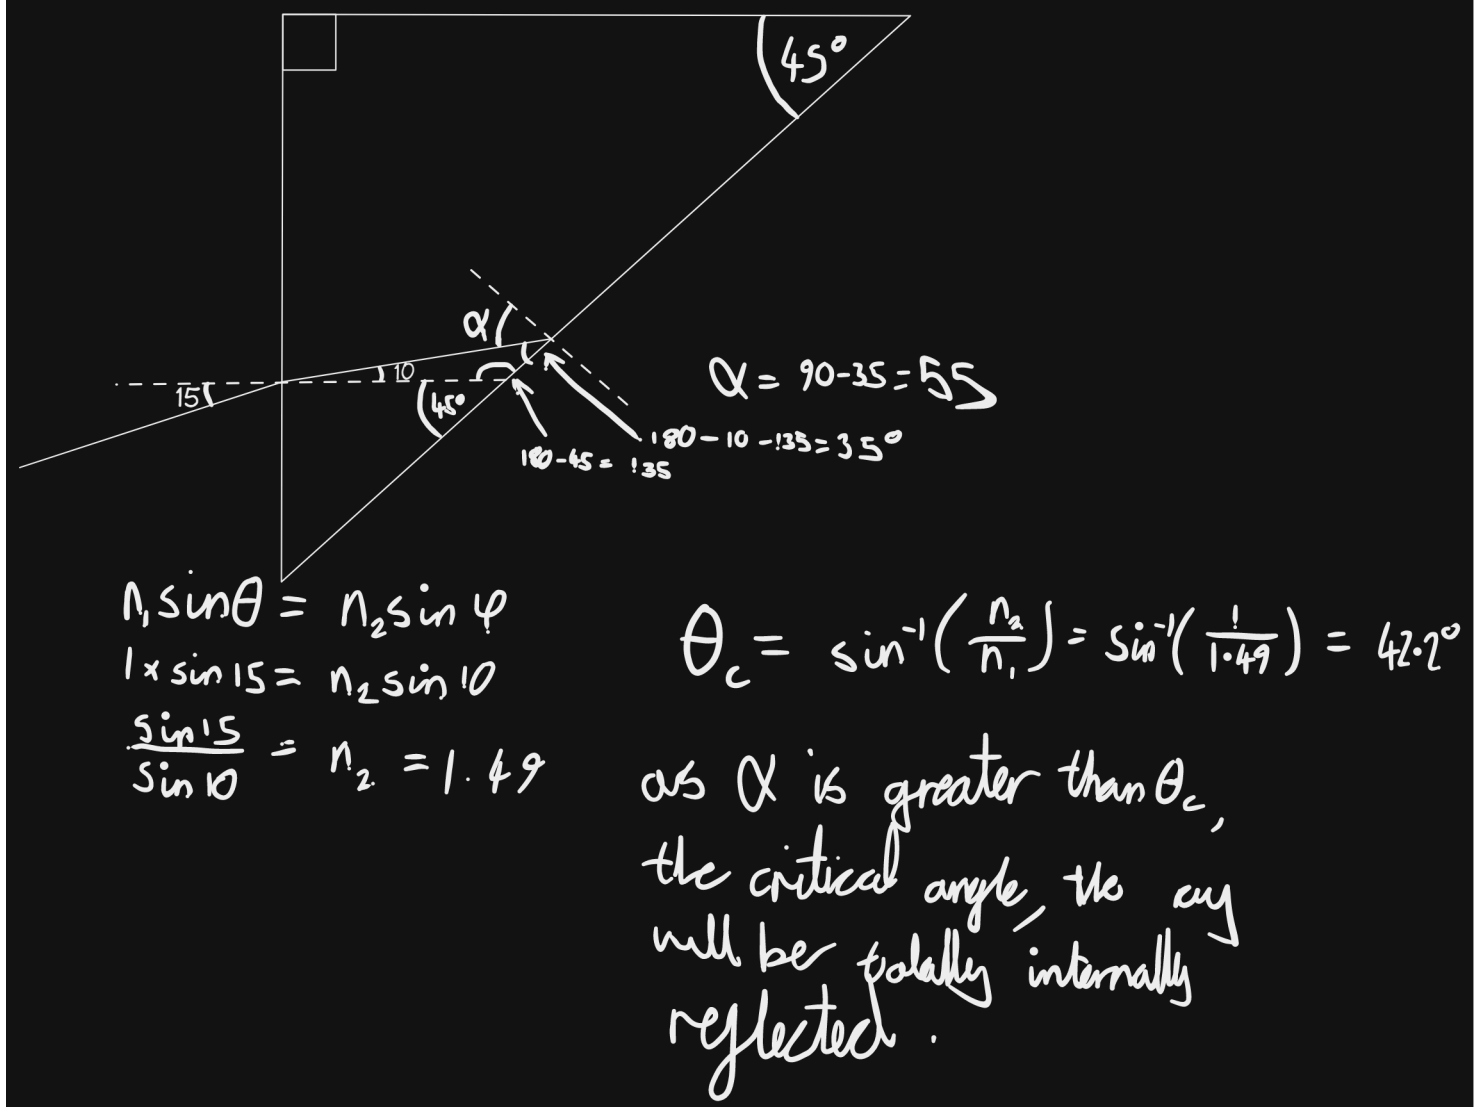 45°
α
10
15
45°
α = 90-35 = 55
180-10-135=35°
180-45= 135
n₁sinθ = n₂sin φ
1×sin 15 = n₂sin 10
sin15/sin 10 = n₂ = 1.49
θc = sin⁻¹(n₂/n₁) = sin⁻¹(1/1.49) = 42.2°
as α is greater than θc,
the critical angle, the ray
will be totally internally
reflected.